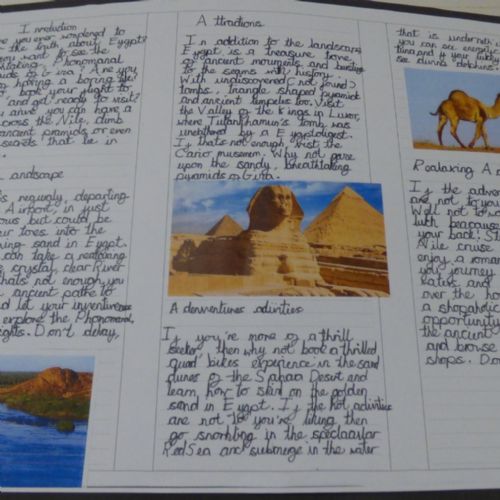 Introduction
ve you ever wanted to
the truth about Egypt?
you want to see the
Phonomanal
mids of Giza? Are you
of having a boring life?
book your flight to
and get ready to visit?
arive you can have a
across the Nile, climb
ancient pramids or even
secrets that lie in
Landscape
regualy, departing
Airport, in just
ours but could be
ur toes into the
sand in Egypt.
can take a realaxing
crystal clear River
thats not enough you
ancient paths to
nd let your inventivenes
explore the Phonomanal
ights. Don't delay,
Attractions
In addition to the landscape
Egypt is a treasure trove
of ancient monuments and bursting
to the seams with history.
With undiscovered (not found)
tombs, Triangle shaped pyramids
and ancient tempelis too. Visit
the Valley of the Kings in Luxor,
where Tutankhamun's tomb was
uneathed by a Egyptologist.
If thats not enough, visit the
Cario musemem. Why not gaze
upon the sandy, breathtaking
pyramids of Giza.
Adenventures adivities
If you're more of a thrill
seeker, then why not book a thrilled
quad bikes experience in the sand
dunes of the Sahaa Desert and
learn how to skim on the golden
sand in Egypt. If the hot adivities
are not to you're liking then
go snorhling in the spectacular
Red Sea and submerge in the water
that is underneath
you can see energetic
and if your lucky
see divine dolphins
Realaxing A
If the adve
are not to you
Well not to wo
luck because
your back. St
Nile cruise
enjoy a roman
you journey
Water and
over the ho
a shopaholic
opportunit
the ancient
and browse
shops. Don